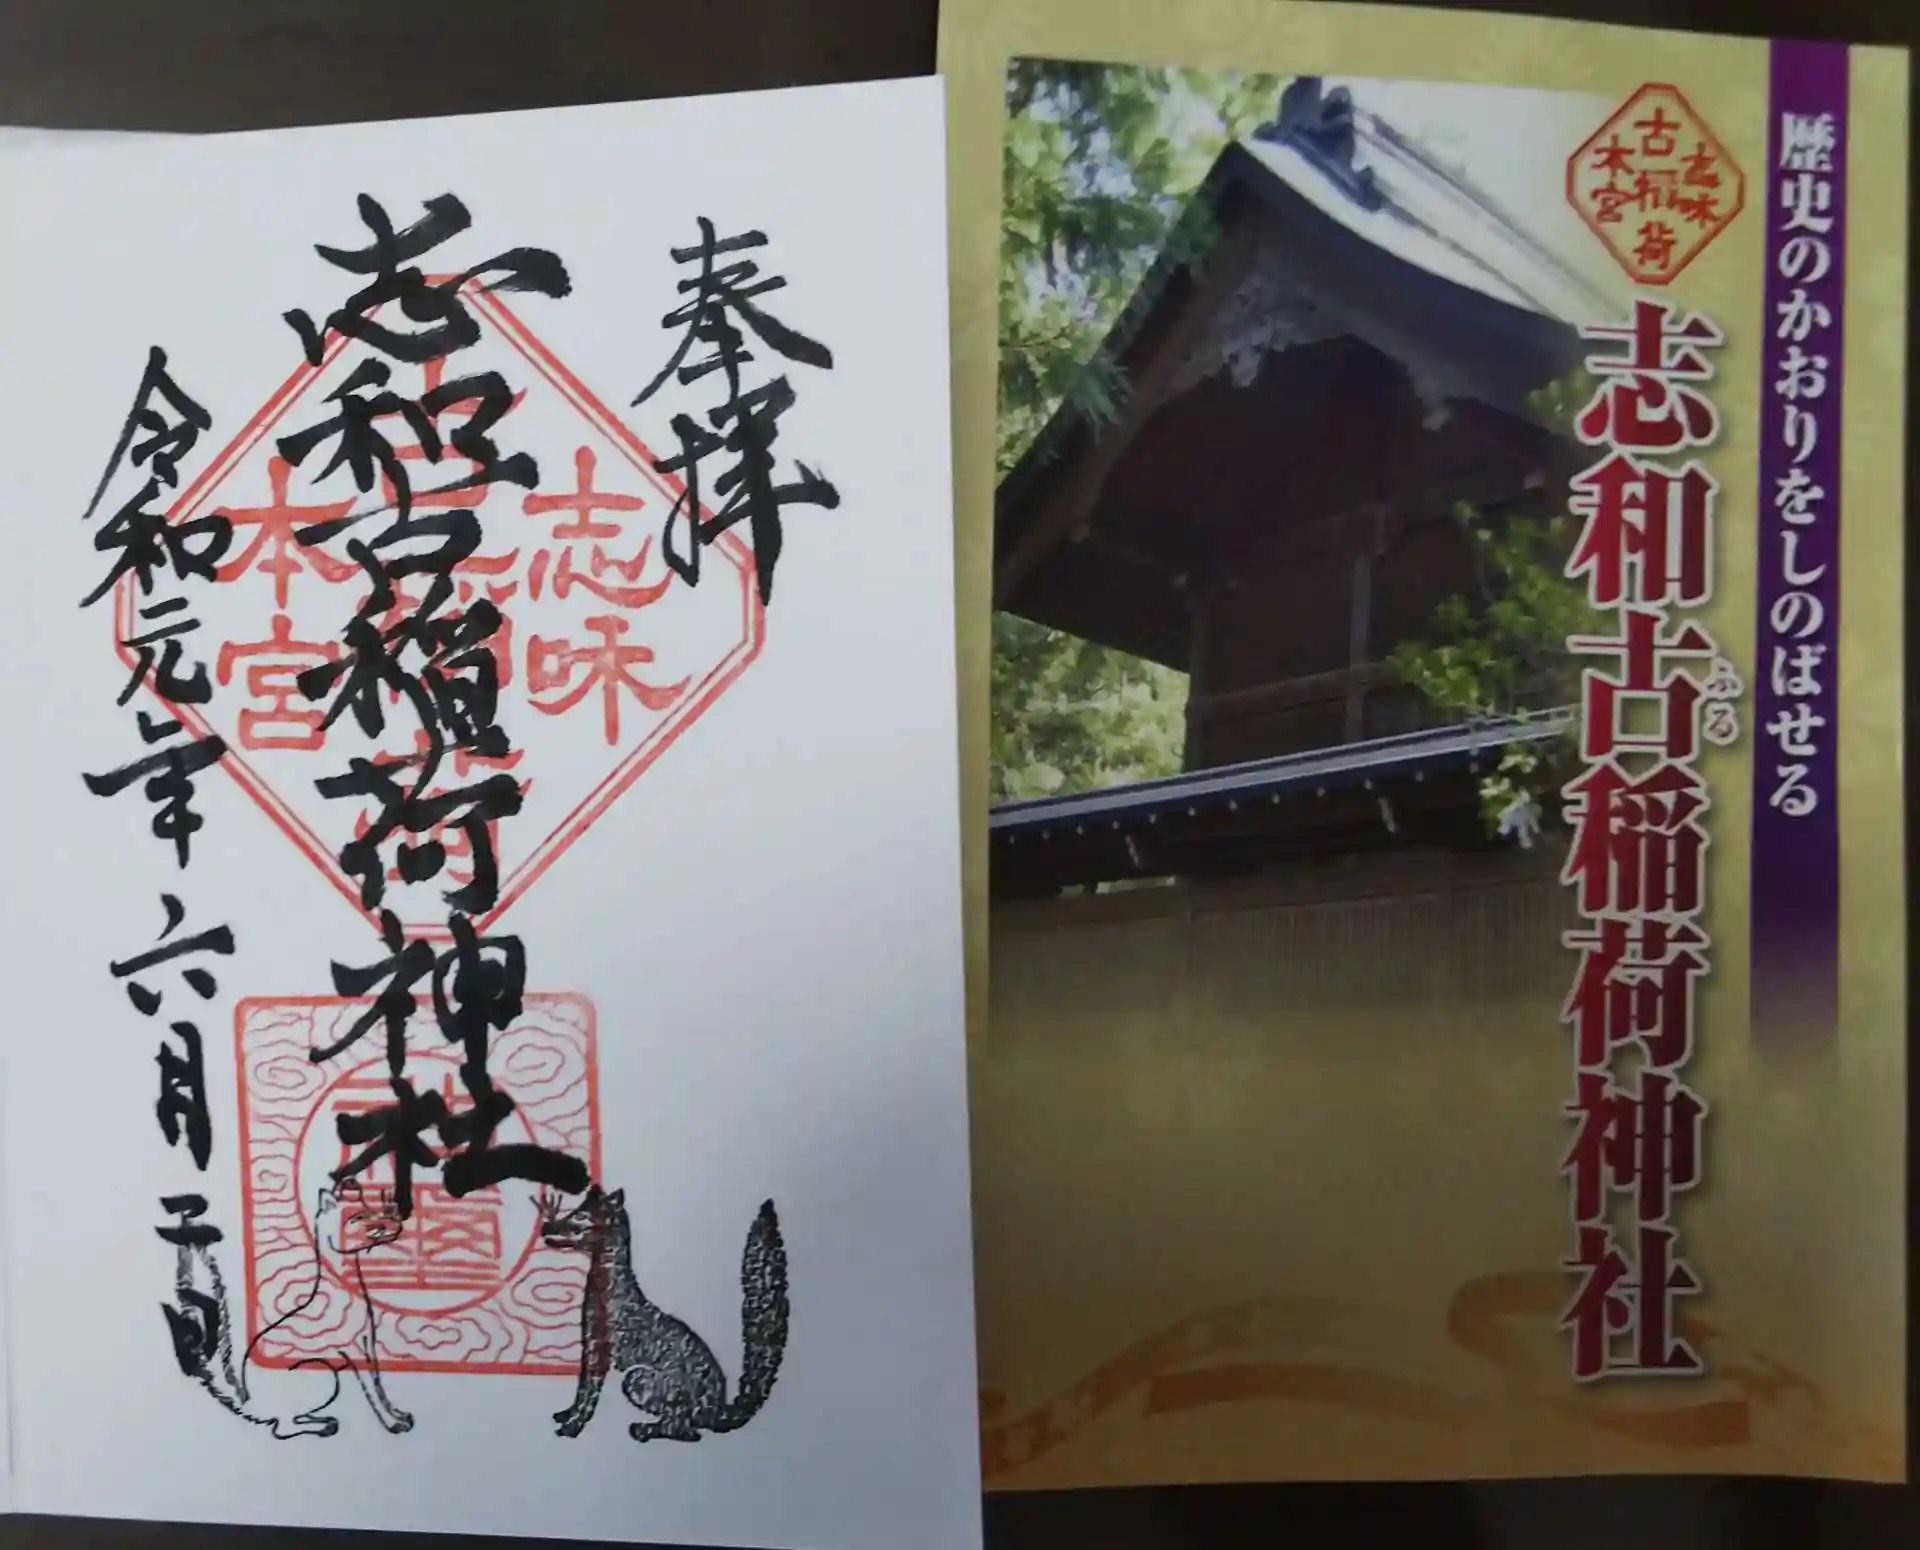 奉拝
志和古稲荷神社
令和元年六月二十日
志味
古稲荷
本宮
歴史のかおりをしのばせる
志和古稲荷神社
ふる
志味
古稲荷
本宮